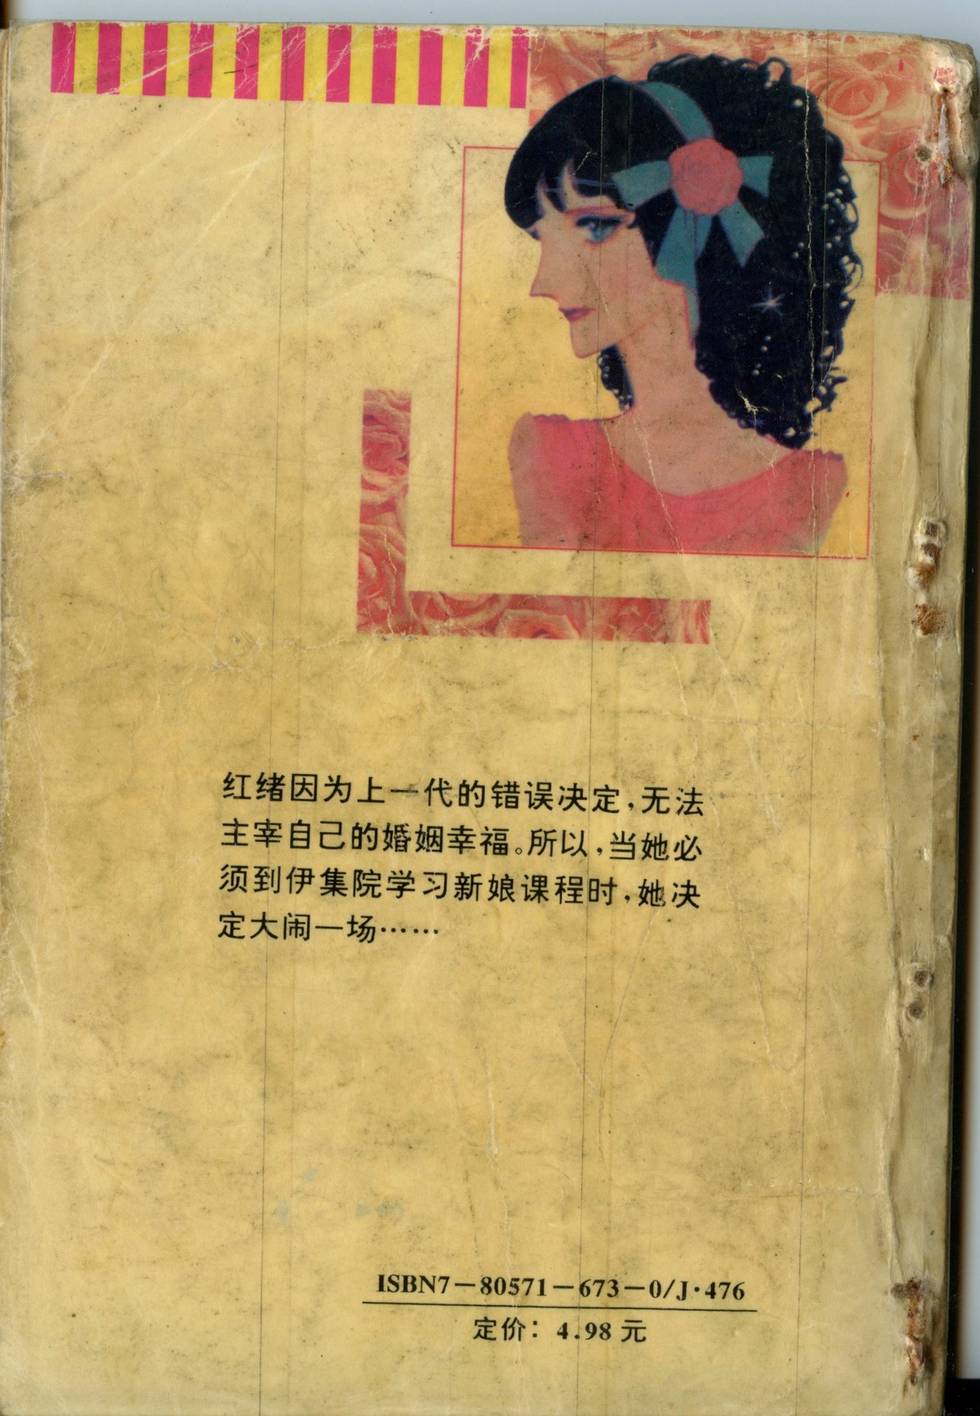 红绪因为上一代的错误决定，无法
主宰自己的婚姻幸福。所以，当她必
须到伊集院学习新娘课程时，她决
定大闹一场……
ISBN7－80571－673－0/J·476
定价：4.98元